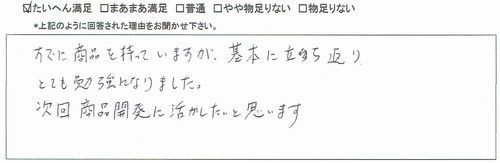 ☑たいへん満足 □まあまあ満足 □普通 □やや物足りない □物足りない
*上記のように回答された理由をお聞かせ下さい。
すでに商品を持っていますが、基本に立ち返り
とても勉強になりました。
次回商品開発に活かしたいと思います